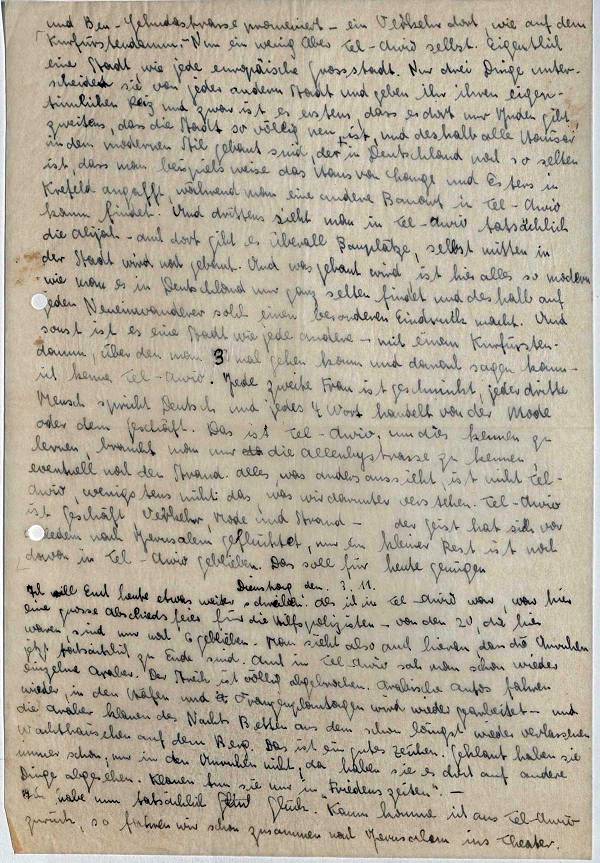 und Ben-Jehudastrasse promeniert - ein Verkehr dort, wie auf dem
Kurfürstendamm.- Nun ein wenig über Tel-Awiw selbst. Eigentlich
eine Stadt wie jede europäische Grossstadt. Nur drei Dinge unter-
scheiden sie von jeder andern Stadt und geben ihr ihren eigen-
tümlichen Reiz und zwar ist es erstens, dass es dort nur Juden gibt,
zweitens, dass die Stadt so völlig neu ist, und deshalb alle Häuser
in dem modernen Stil gebaut sind, der in Deutschland noch so selten
ist, dass man beispielsweise das Haus von Lange und Esters in
Krefeld angafft, während man eine andere Bauart in Tel-Awiw
kaum findet. Und drittens sieht man in Tel-Awiw tatsächlich
die Alijah - auch dort gibt es überall Bauplätze, selbst mitten in
der Stadt wird noch gebaut. Und was gebaut wird ist hier alles so modern
wie man es in Deutschland nur ganz selten findet und deshalb auf
jeden Neueinwanderer solch einen besonderen Eindruck macht. Und
sonst ist es eine Stadt wie jede andere - mit einem Kurfürsten-
damm, über den man 3 mal gehen kann und danach sagen kann-
ich kenne Tel-Awiw. Jede zweite Frau ist geschminkt, jeder dritte
Mensch spricht Deutsch und jedes 4 Wort handelt von der Mode
oder dem Geschäft. Das ist Tel-Awiw, um dies kennen zu
lernen, braucht man nur die Allenbystrasse zu kennen,
eventuell noch den Strand. Alles, was anders aussieht, ist nicht Tel-
Awiw, wenigstens nicht das, was wir darunter verstehen. Tel-Awiw
ist Geschäft, Verkehr, Mode und Strand - der Geist hat sich vor
nach Jerusalem geflüchtet, nur ein kleiner Rest ist noch
davon in Tel-Awiw geblieben. Das soll für heute genügen
Dienstag den 3. 11.
Ich will Euch heute etwas weiter schreiben. Als ich in Tel-Awiw war, war hier
eine grosse Abschiedsfeier für die Hilfspolizisten - von den 20, die hier
waren, sind nur noch 6 geblieben. Man sieht also auch hieran, dass die Unruhen
jetzt tatsächlich zu Ende sind. Auch in Tel-Awiw sah man schon wieder
einzelne Araber. Der Streik ist völlig abgebrochen. Arabische Autos fahren
wieder, in den Häfen und Orangenplantagen wird wieder gearbeitet - und
die Araber klauen des Nachts Betten aus dem schon längst wieder verlassenen
Wachthäuschen auf dem Berg. Das ist ein gutes Zeichen. Geklaut haben sie
immer schon, nur in den Unruhen nicht, da haben sie es dort auf andere
Dinge abgesehen. Klauen tun sie nur in "Friedenszeiten". -
Ich habe nun tatsächlich Glück. Kaum komme ich aus Tel-Awiw
zurück, so fahren wir schon zusammen nach Jerusalem ins Theater.